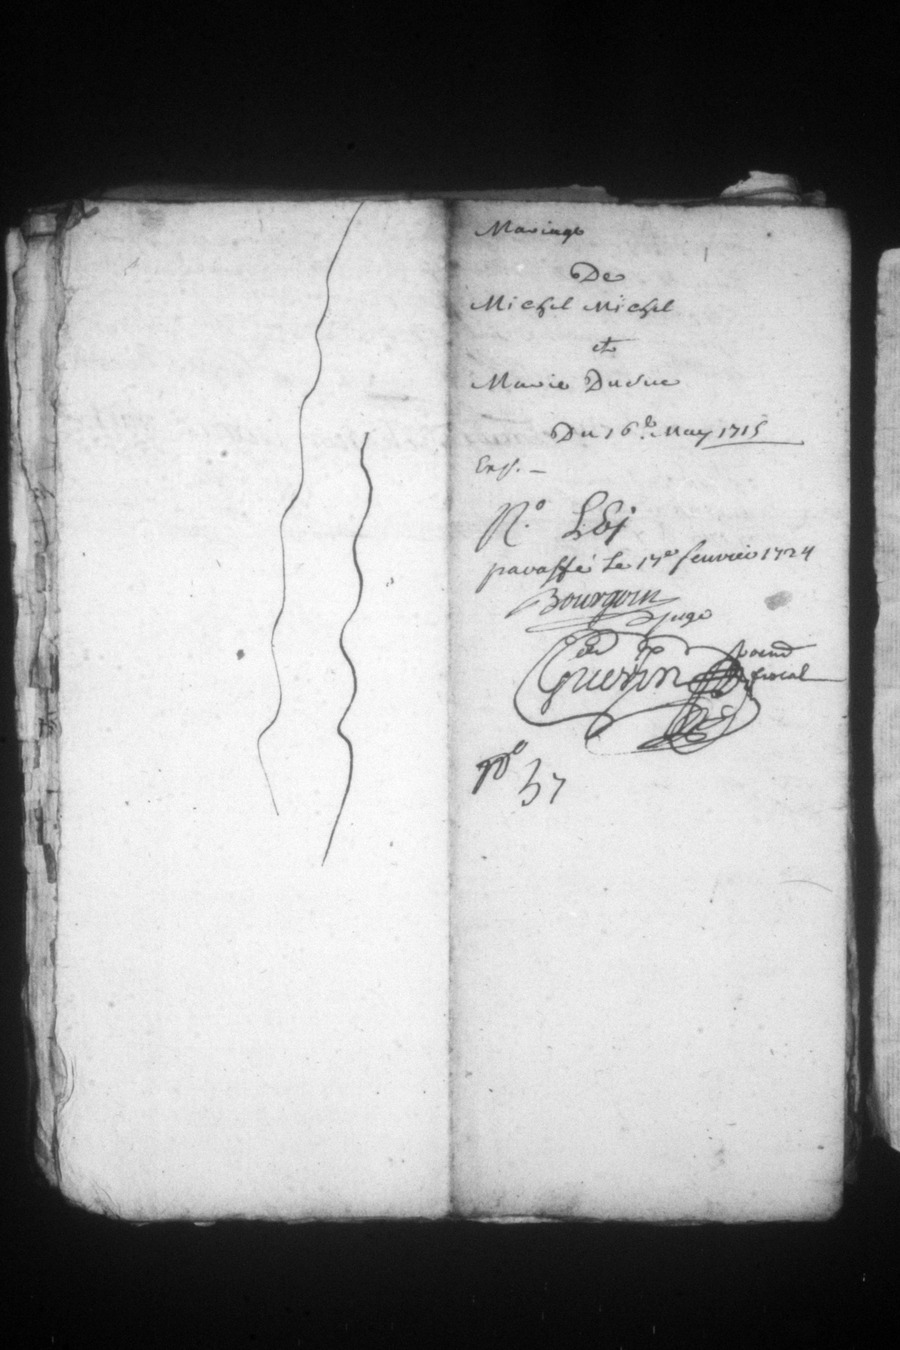 Mariage
De
Michel Michel
et
Marie Duduc
Du 16e May 1715
Exp. –
N.o LEj
paraffé Le 17e feuvrier 1724
Bourgoin
Juge
Guerin fiscal
No 57